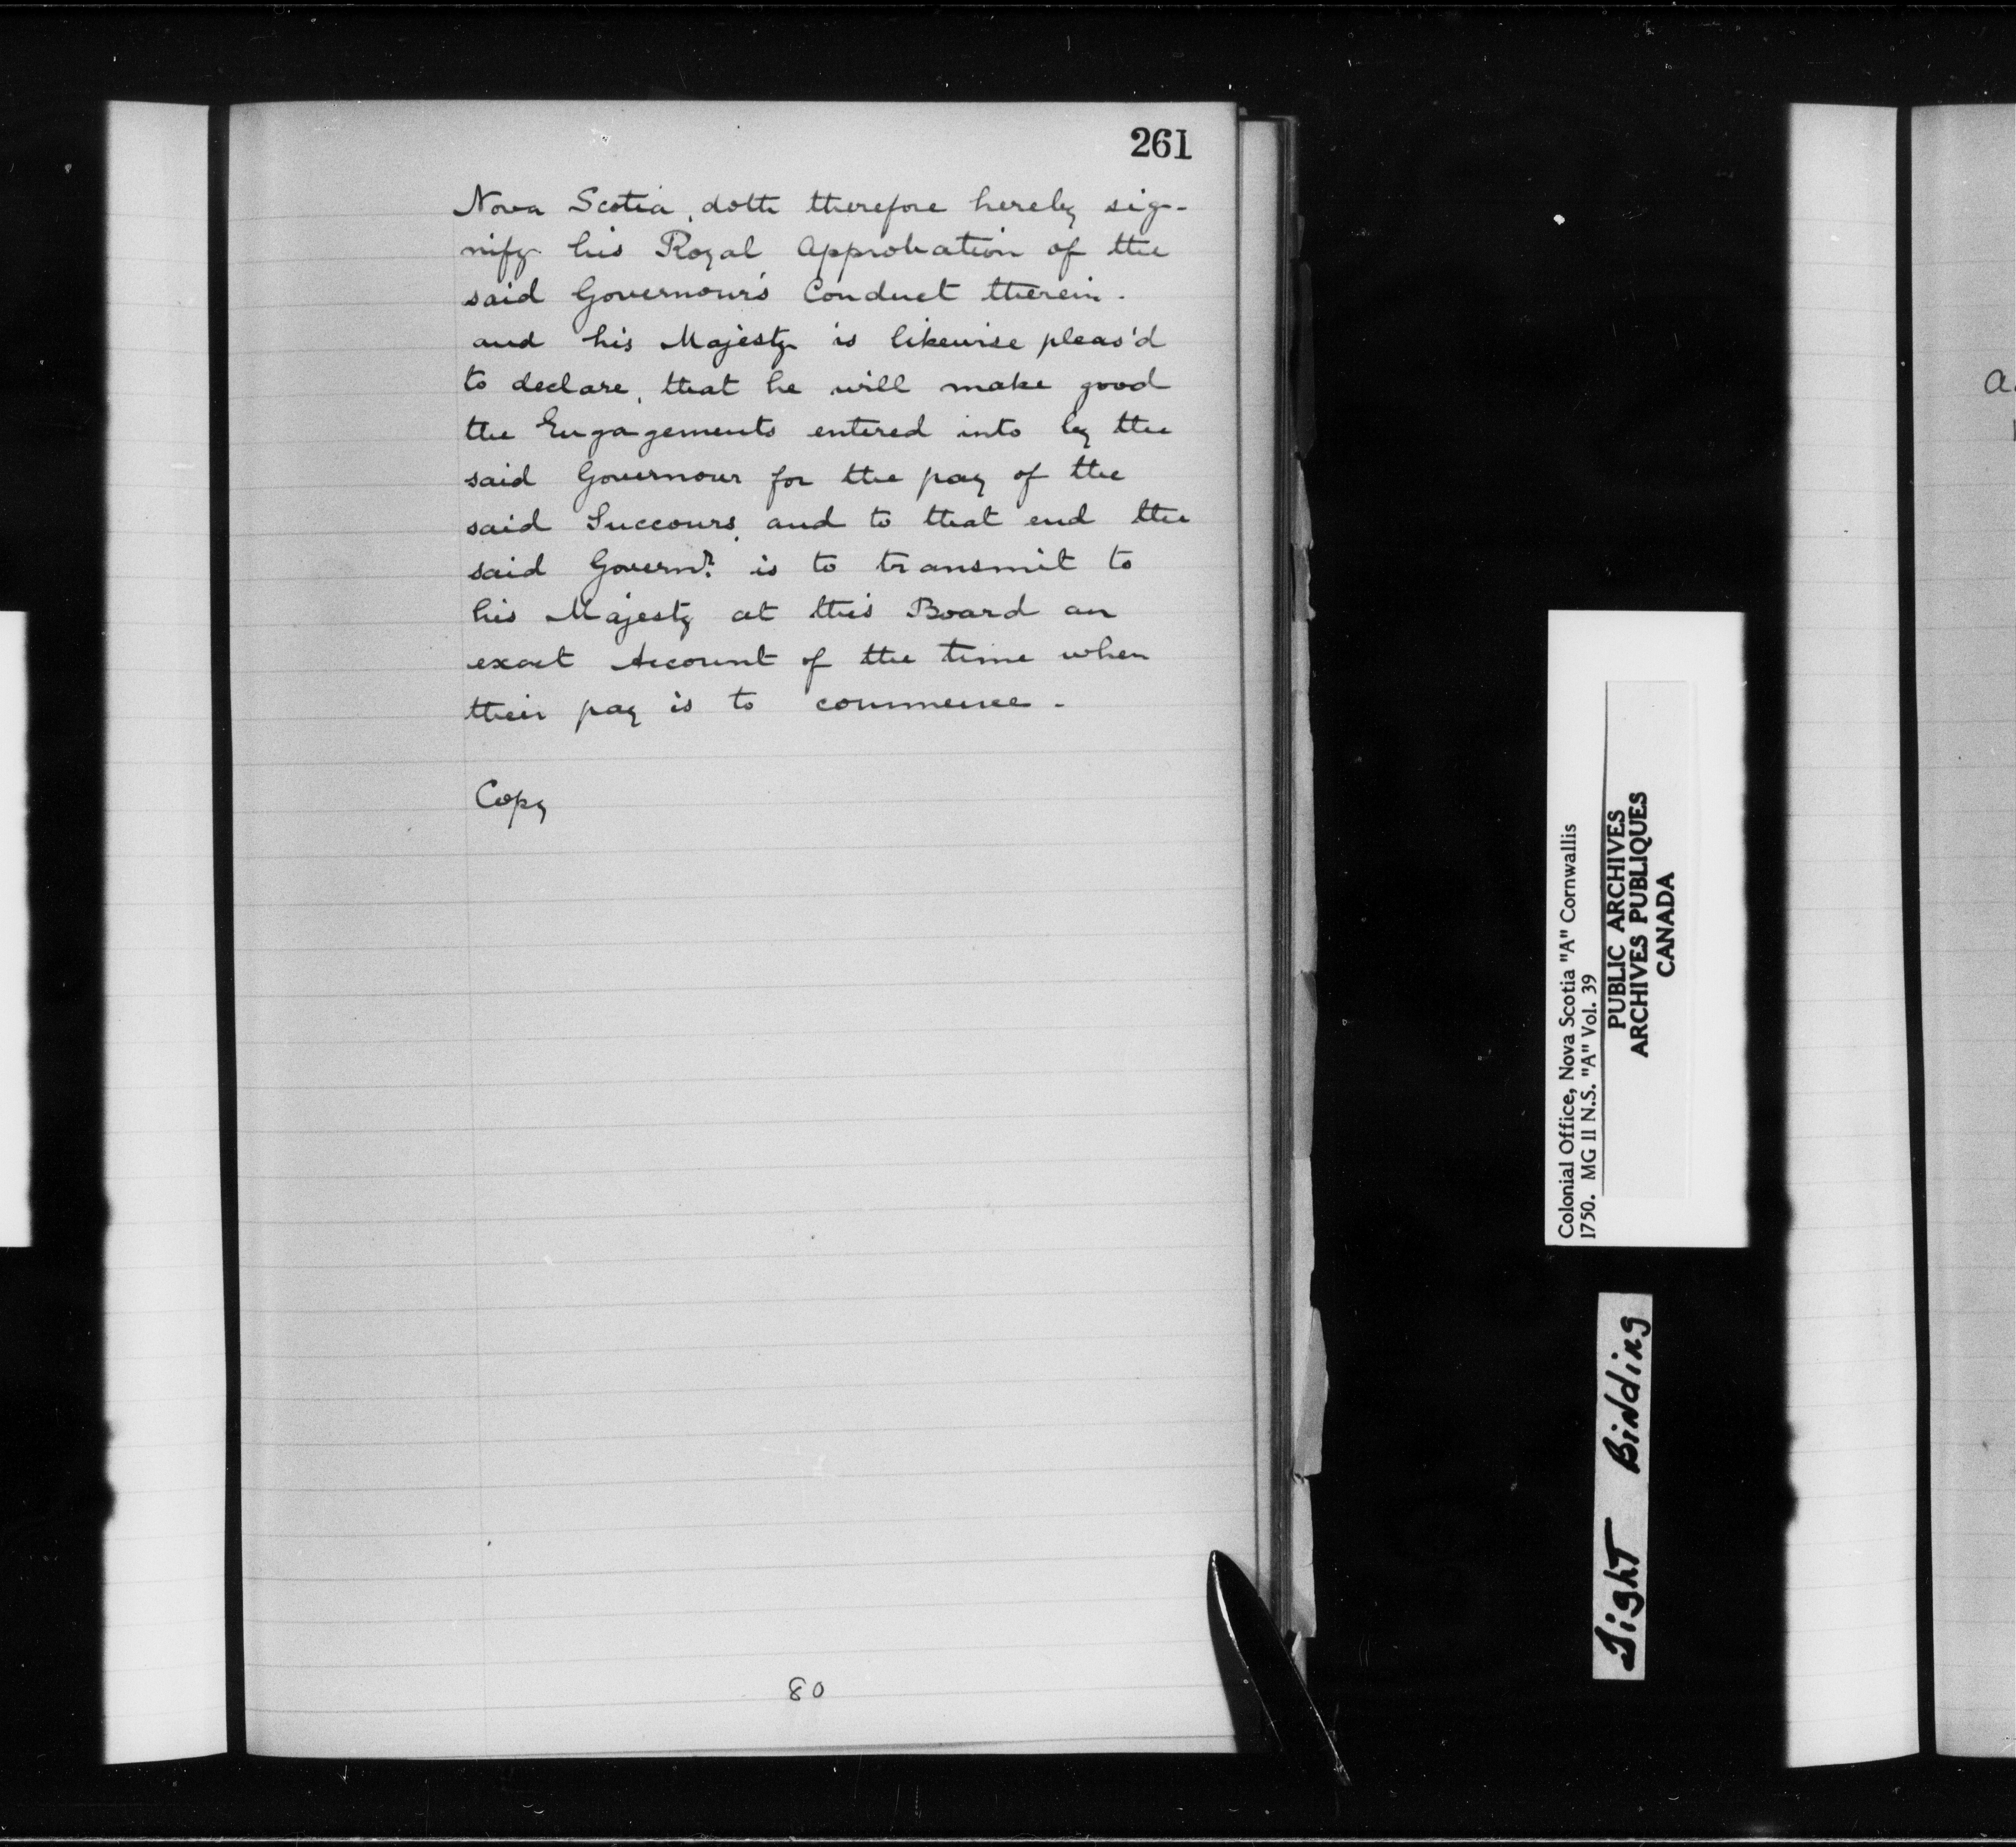 261
Nova Scotia, doth therefore hereby sig-
nify his Royal Approbation of the
said Governour's Conduct therein.
and his Majesty is likewise pleas'd
to declare, that he will make good
the Engagements entered into by the
said Governour for the pay of the
said Succours, and to that end the
said Governr. is to transmit to
his Majesty at this Board an
exact Account of the time when
their pay is to commence.
Copy
80
Colonial Office, Nova Scotia "A" Cornwallis
1750. MG 11 N.S. "A" Vol. 39
PUBLIC ARCHIVES
ARCHIVES PUBLIQUES
CANADA
Tight Binding